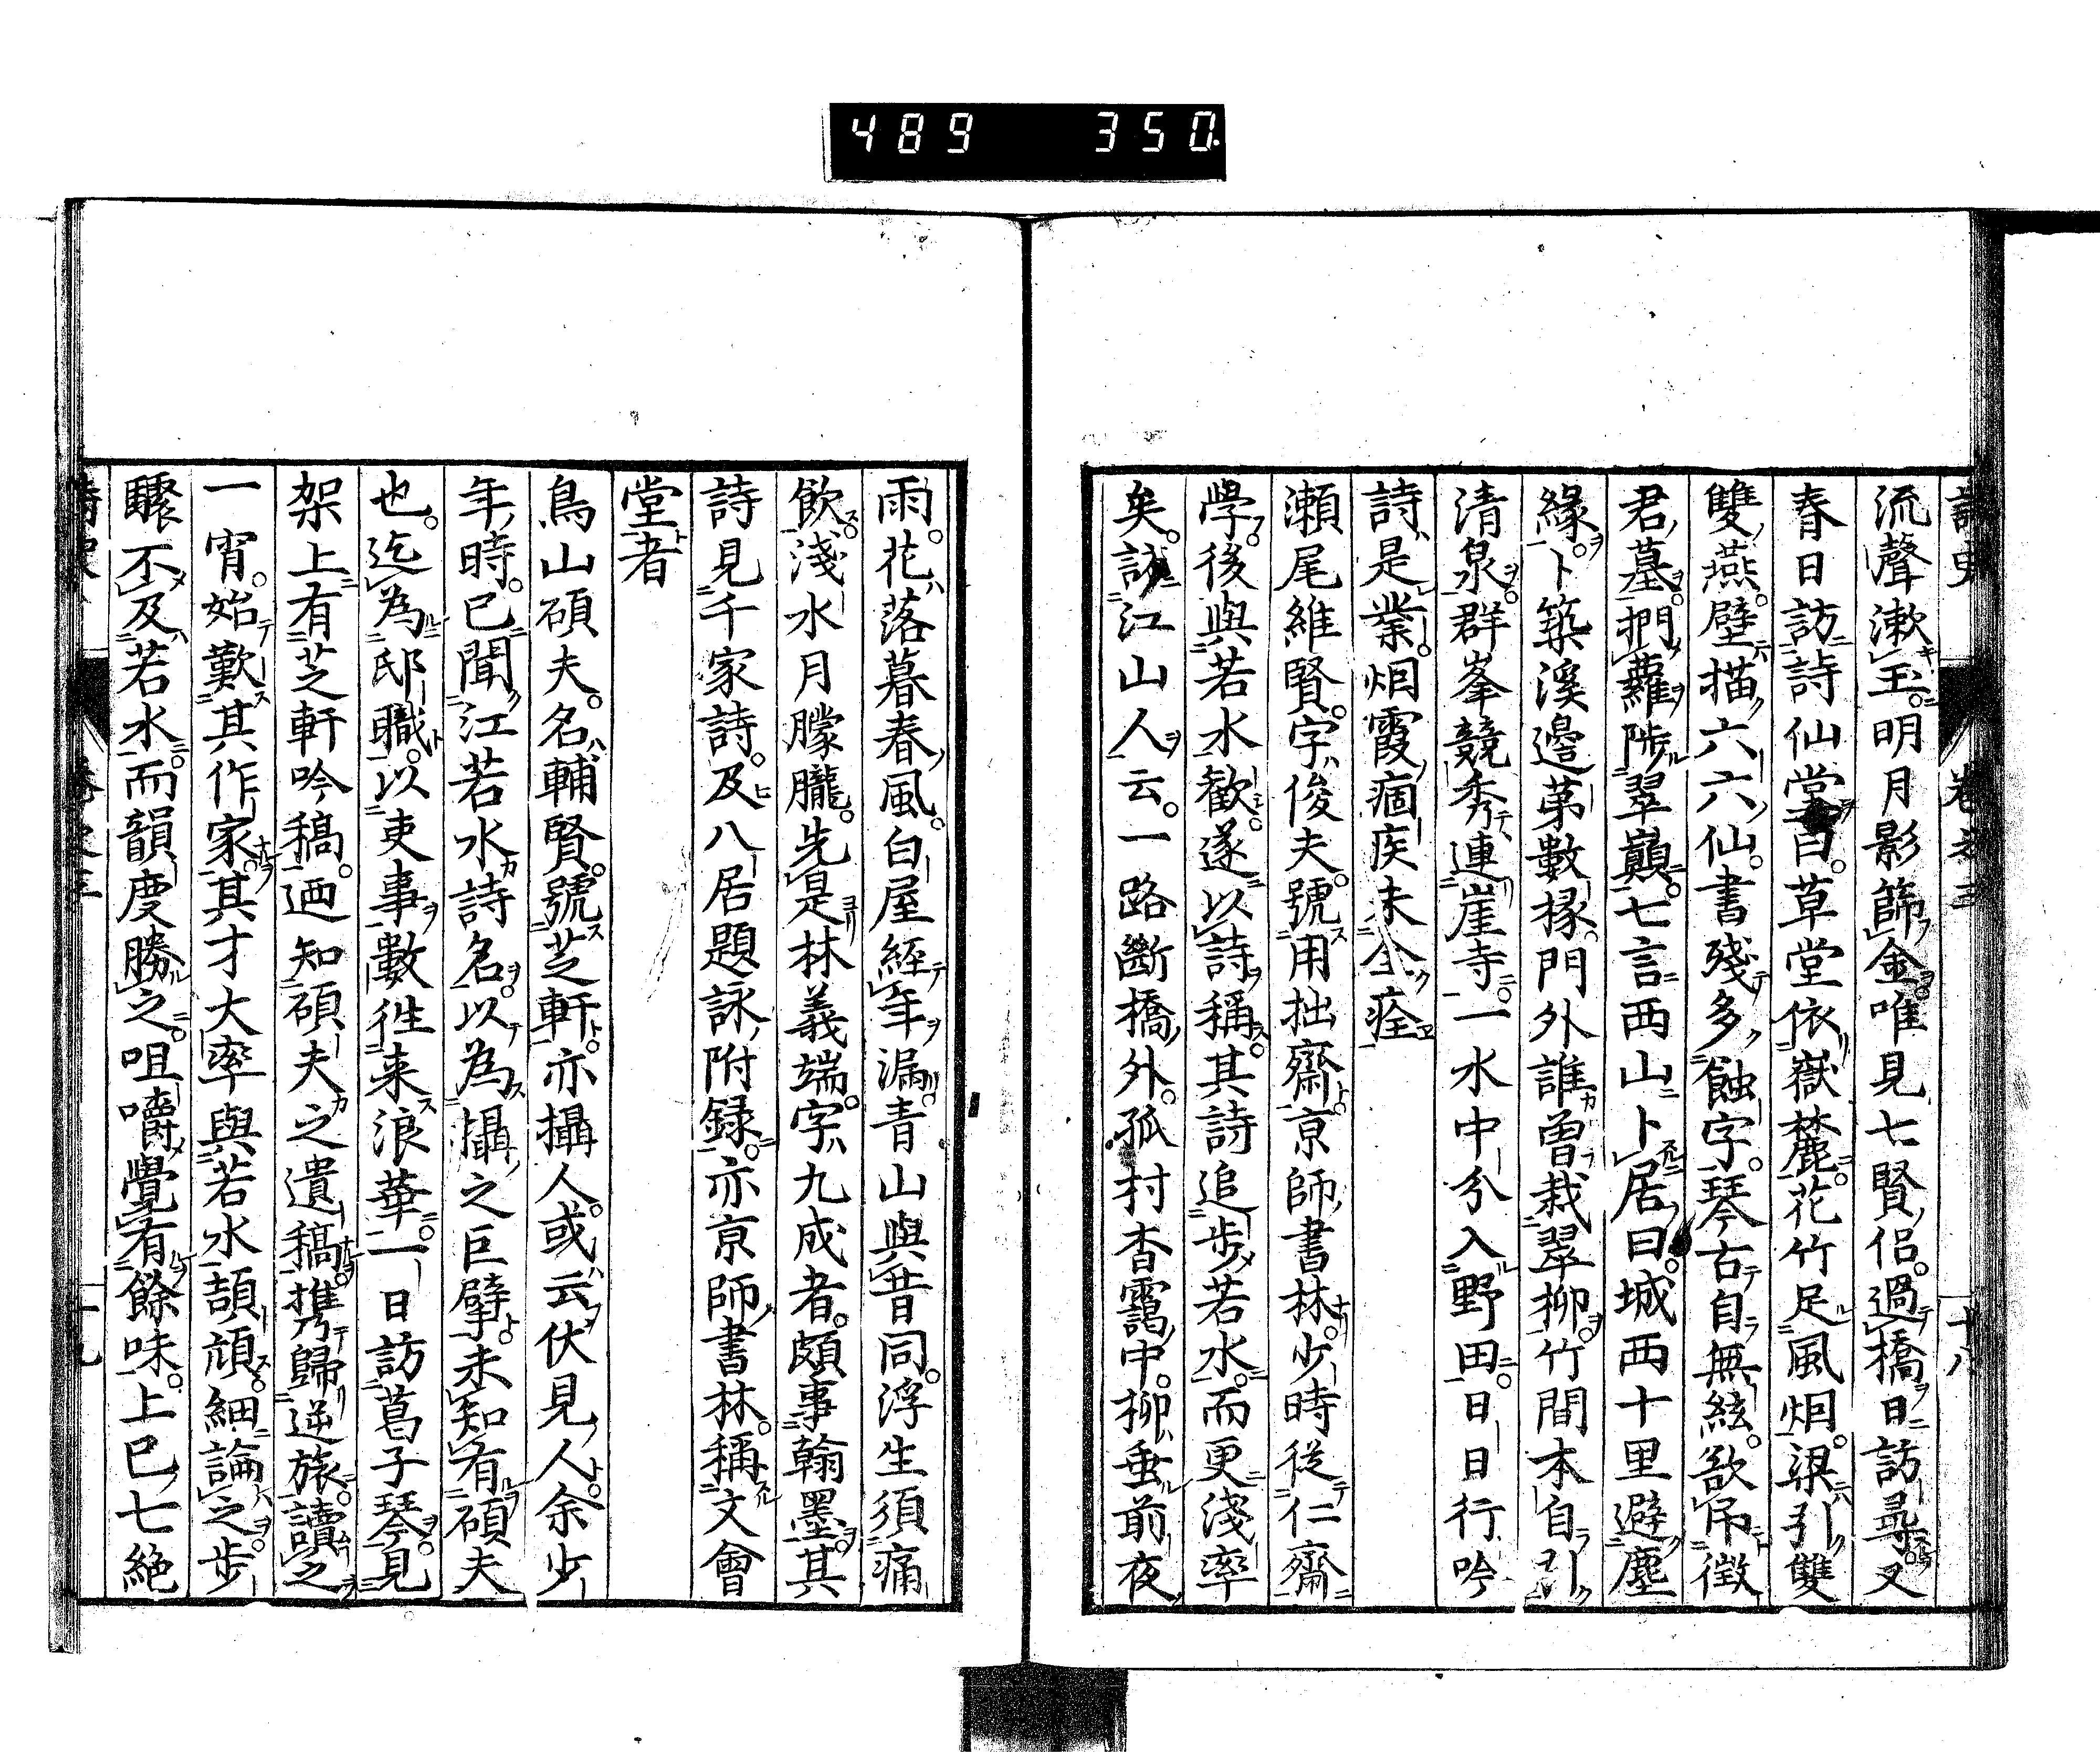 489 350.
流聲漱玉。明月影篩金。唯見七賢侶。過橋日訪尋又
春日訪詩仙堂曰。草堂依嶽麓。花竹足風烟。梁引雙
雙燕。壁描六六仙。書殘多蝕字。琴古自無絃。欲吊徵
君墓。捫蘿陟翠巓。七言西山卜居曰。城西十里避塵
緣。卜築溪邊茅數椽。門外誰曾栽翠柳。竹間本自引
清泉。群峯競秀連崖寺。一水中分入野田。日日行吟
詩是業。烟霞痼疾未全痊
瀨尾維賢。字俊夫。號用拙齋。京師書林。少時從仁齋
學。後與若水歡。遂以詩稱。其詩追步若水。而更淺率
矣。訪江山人云。一路斷橋外。孤村杳靄中。柳垂前夜
雨。花落暮春風。白屋經年漏。青山與昔同。浮生須痛
飲。淺水月朦朧。先是林義端。字九成者。頗事翰墨。其
詩見千家詩。及八居題詠附録。亦京師書林。稱文會
堂者
鳥山碩夫。名輔賢。號芝軒。亦攝人。或云伏見人。余少
年時。已聞江若水詩名。以為攝之巨擘。未知有碩夫
也。迄為邸職。以吏事數徃来浪華。一日訪葛子琴。見
架上有芝軒吟稿。迺知碩夫之遺稿。携歸逆旅。讀之
一宵。始歎其作家。其才大率與若水頡頏。細論之。步
驟不及若水。而韻度勝之。咀嚼覺有餘味。上巳七絶
卷之三
十八